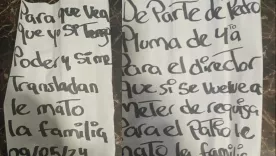 Para que vean
que yo si tengo
Poder y si me
Transladan
le mato
la familia
09/05/24
De Parte de Pedro
Pluma de 4ta
Para el director
que si se vuelve a
Meter de requisa
Para el Patio le
Mato la familia